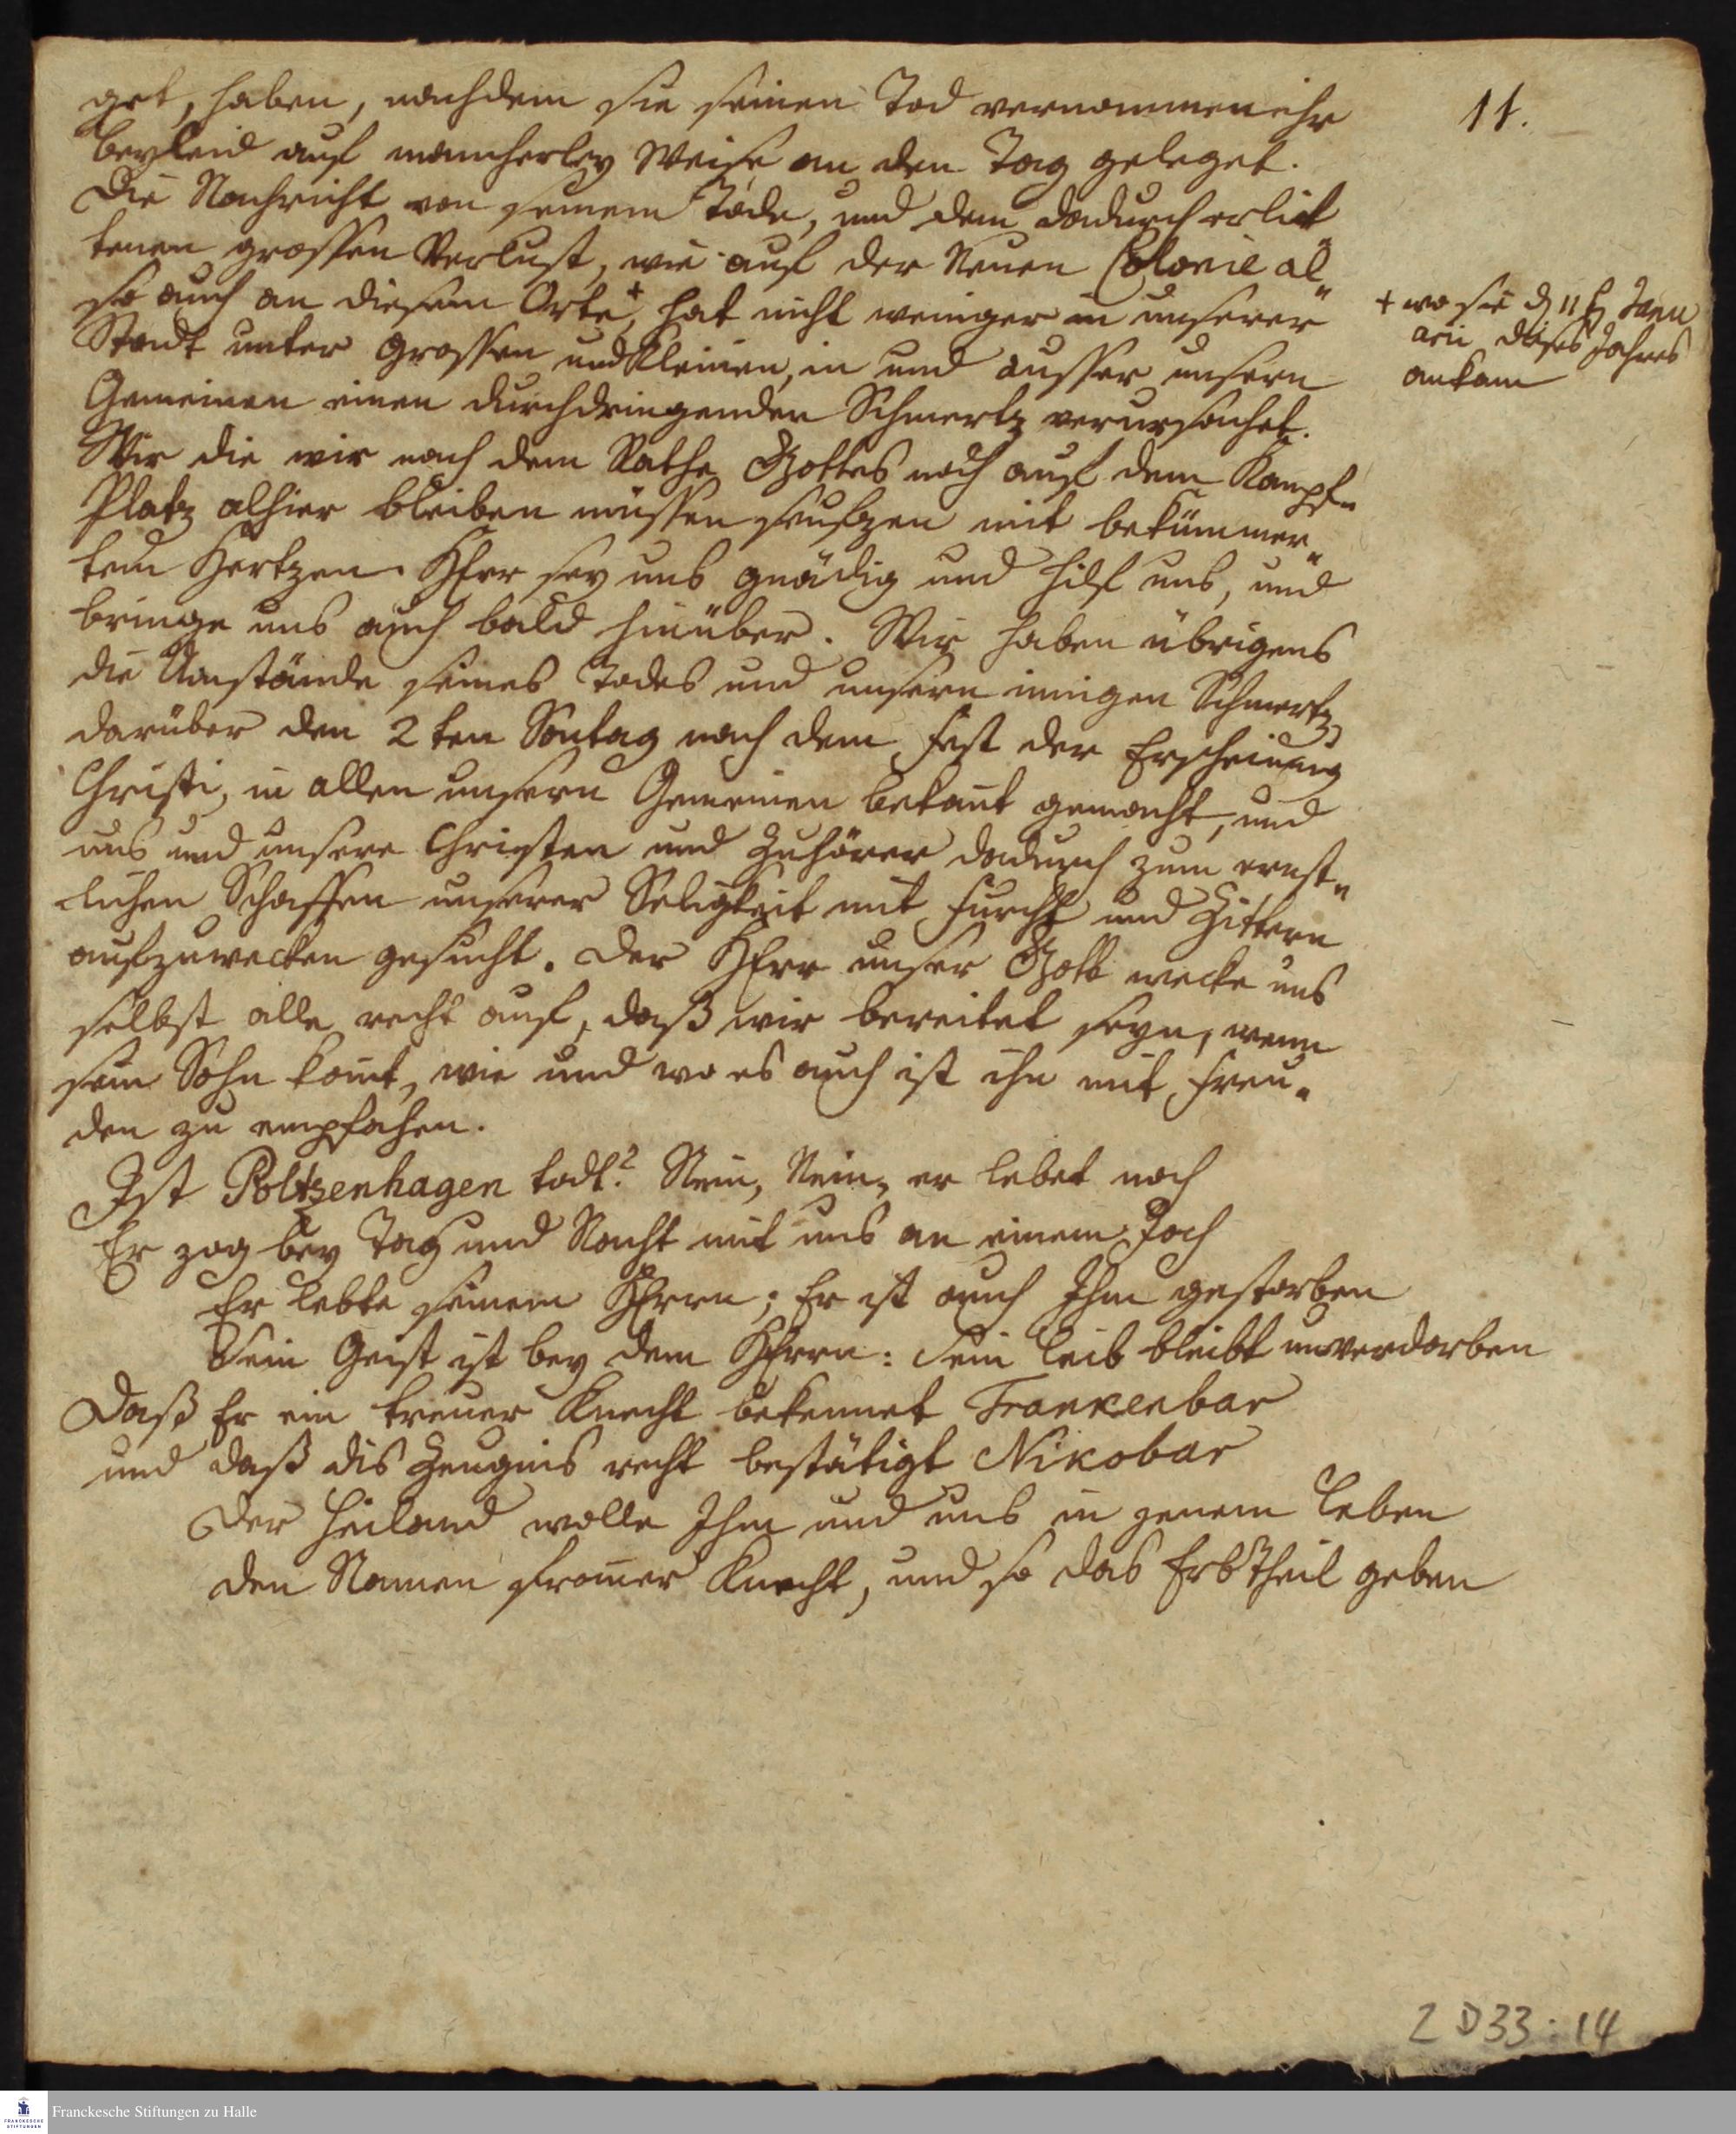 11.
get, haben, nachdem sie seinen Tod vernommen ihr
beyleid auf mancherley Weise an den Tag geleget.
Die Nachricht von seinem Tode, und dem dadurch erlit„
tenen grossen Verlust, wie auf der Neuen Colonie al„
so auch an diesem Orte + hat nicht weniger in unserer
+ wo sie d 11 Janu
arii dieses Jahres
ankam
Stadt unter Grossen und Kleinen, in und ausser unsern
Gemeinen einen durchdringenden Schmertz verursachet.
Wir die wir nach dem Rathe Gottes noch auf dem Kampf„
Platz alhier bleiben müssen seufzen mit bekümmer„
tem Hertzen. HErr sey uns gnädig und hilf uns, und
bringe uns auch bald hinüber. Wir haben übrigens
die Umstände seines Todes und unsern innigen Schmertz
darüber den 2ten Sontag nach dem Fest der Erscheinung
Christi, in allen unsern Gemeinen bekant gemacht, und
uns und unsere Christen und Zuhörer dadurch zum ernst„
lichen Schaffen unserer Seligkeit mit Furcht und Zittern
aufzuwecken gesucht. Der HErr unser Gott wecke uns
selbst alle recht auf, daß wir bereitet seyn, wenn
sein Sohn komt, wie und wo es auch ist ihn mit Freu„
den zu empfahen.
Ist Poltzenhagen todt? Nein, Nein, er lebet noch
Er zog bey Tag und Nacht mit uns an einem Joch
Er lebte seinem HErrn; Er ist auch Ihm gestorben
Sein Geist ist bey dem HErrn: Sein Leib bleibt unverdorben
Daß Er ein treuer Knecht bekennet Trankenbar
und daß dis Zeugnis recht bestätigt Nikobar
Der Heiland wolle Ihm und uns in jenem Leben
den Namen fromer Knecht, und so das Erbtheil geben
2 D33:14
FRANCKESCHE
STIFTUNGEN
Franckesche Stiftungen zu Halle